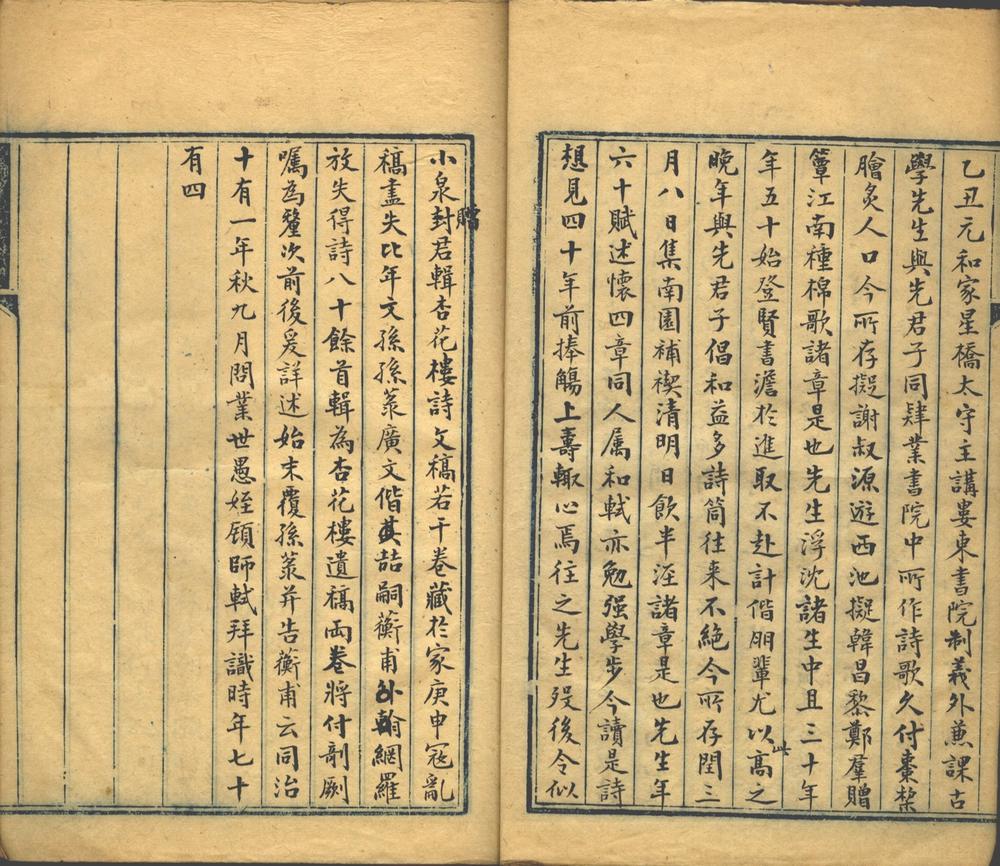 乙丑元和家星橋太守主講婁東書院制義外兼課古
學先生與先君子同肄業書院中所作詩歌久付棗棃
膾炙人口今所存擬謝叔源游西池擬韓昌黎鄭羣贈
簟江南種棉歌諸章是也先生浮沈諸生中且三十年
年五十始登賢書澹於進取不赴計偕朋輩尤以此高之
晚年與先君子倡和益多詩筒往來不絕今所存閏三
月八日集南園補禊清明日飲半淫諸章是也先生年
六十賦述懷四章同人属和軾亦勉强學步今讀是詩
想見四十年前捧觴上壽輒心焉往之先生歿後令似
小泉封君輯杏花樓詩文稿若干卷藏於家庚申寇亂
贈
稿盡失比年文孫孫菉廣文偕其喆嗣蘅甫外翰網羅
放失得詩八十餘首輯為杏花樓遺稿兩卷將付剞劂
囑為釐次前後爰詳述始末覆孫菉并告蘅甫云同治
十有一年秋九月問業世愚姪顧師軾拜識時年七十
有四